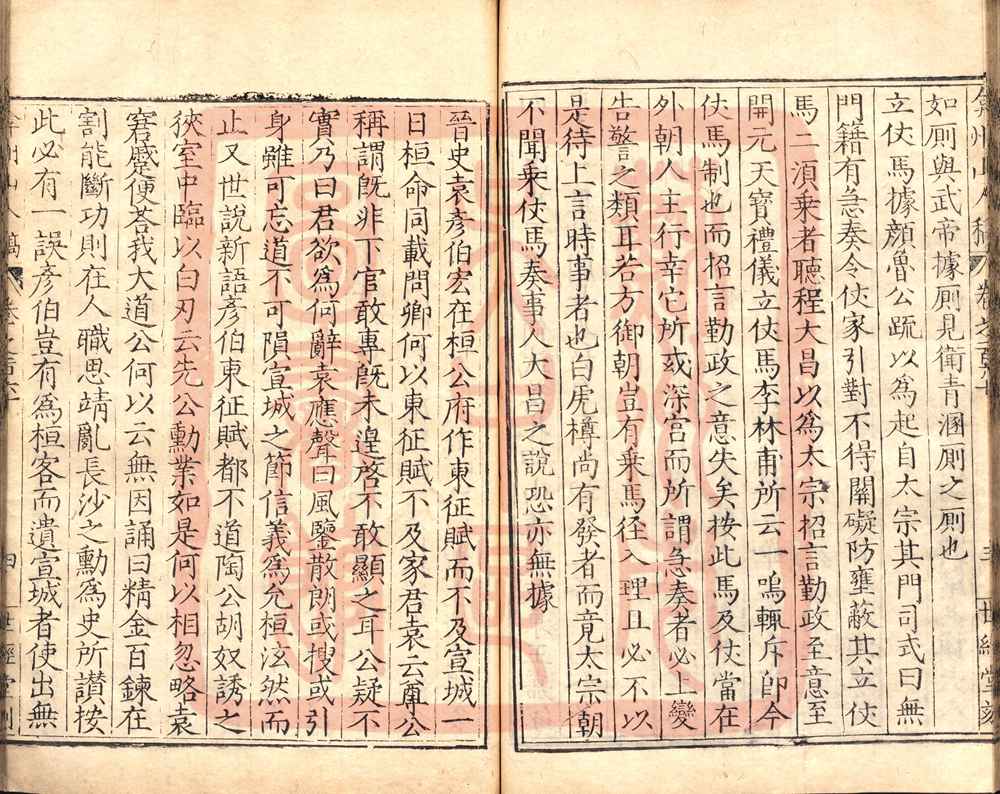 弇州山人稿 卷之一百六十 三 世經堂刻
如厠與武帝據厠見衛青溷厠之厠也
立仗馬據顏魯公䟽以為起自太宗其門司式曰無
門籍有急奏令仗家引對不得關礙防壅蔽其立仗
馬二須乗者聽程大昌以為太宗招言勤政至意至
開元天寶禮儀立仗馬李林甫所云一嗚輒斥即今
仗馬制也而招言勤政之意失矣按此馬及仗當在
外朝人主行幸它所或深宫而所謂急奏者必上變
告警之類耳若方御朝豈有乗馬径入理且必不以
是待上言時事者也白虎樽尚有發者而竟太宗朝
不聞乗仗馬奏事人大昌之說恐亦無據
晉史袁彦伯宏在桓公府作東征賦而不及宣城一
日桓命同載問卿何以東征賦不及家君袁云尊公
稱謂旣非下官敢專旣未遑啓不敢顯之耳公疑不
實乃曰君欲爲何辭袁應聲曰風鑒散朗或搜或引
身雖可忘道不可隕宣城之節信義爲允桓泫然而
止又世說新語彦伯東征賦都不道陶公胡奴誘之
狹室中臨以白刃云先公勳業如是何以相忽略袁
窘蹙便荅我大道公何以云無因誦曰精金百鍊在
割能斷功則在人職思靖亂長沙之勳爲史所讃按
此必有一誤彦伯豈有爲桓客而遺宣城者使出無
弇州山人稿 卷之一百六十 四 世經堂刻